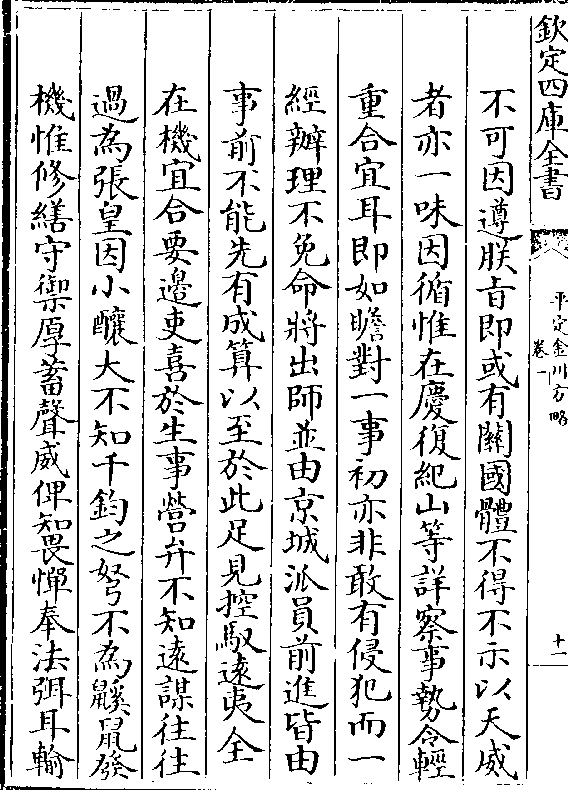 欽定四庫全書
平定金川方略
卷一
十一
不可因遵朕㫖即或有關國體不得不示以天威
者亦一味因循惟在慶復紀山等詳察事勢令輕
重合宜耳即如瞻對一事初亦非敢有侵犯而一
經辦理不免命將出師並由京城派員前進皆由
事前不能先有成算以至於此足見控馭遠夷全
在機宜合要邊吏喜於生事營弁不知遠謀往往
過為張皇因小釀大不知千鈞之弩不為鼷鼠發
機惟修繕守禦厚蓄聲威俾知畏憚奉法弭耳輸